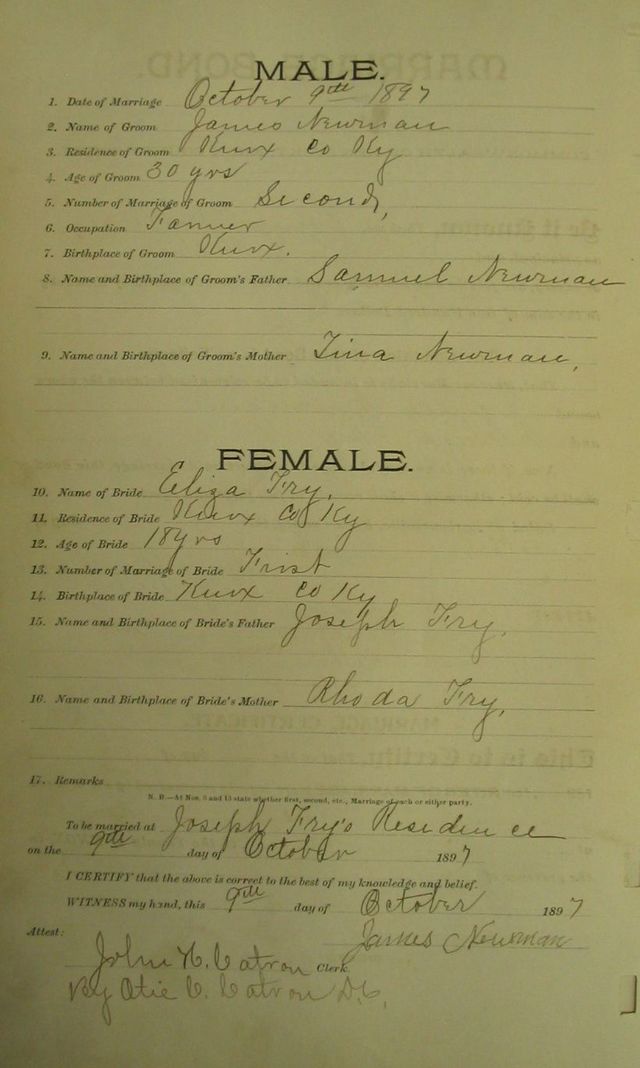 MALE.
1. Date of Marriage October 9th 1897
2. Name of Groom James Newman
3. Residence of Groom Knox Co Ky
4. Age of Groom 30 yrs
5. Number of Marriage of Groom Second,
6. Occupation Farmer
7. Birthplace of Groom Knox.
8. Name and Birthplace of Groom's Father Samuel Newman
9. Name and Birthplace of Groom's Mother Tina Newman,
FEMALE.
10. Name of Bride Eliza Fry,
11. Residence of Bride Knox Co Ky
12. Age of Bride 18 yrs
13. Number of Marriage of Bride Frist
14. Birthplace of Bride Knox Co Ky
15. Name and Birthplace of Bride's Father Joseph Fry,
16. Name and Birthplace of Bride's Mother Rhoda Fry,
17. Remarks
N. B.—At Nos. 5 and 13 state whether first, second, etc., Marriage of each or either party.
To be married at Joseph Fry's Residence
on the 9th day of October 1897
I CERTIFY that the above is correct to the best of my knowledge and belief.
WITNESS my hand, this 9th day of October 1897
James Newman
Attest:
John H. Catron Clerk
By Otie C. Catron D.C,